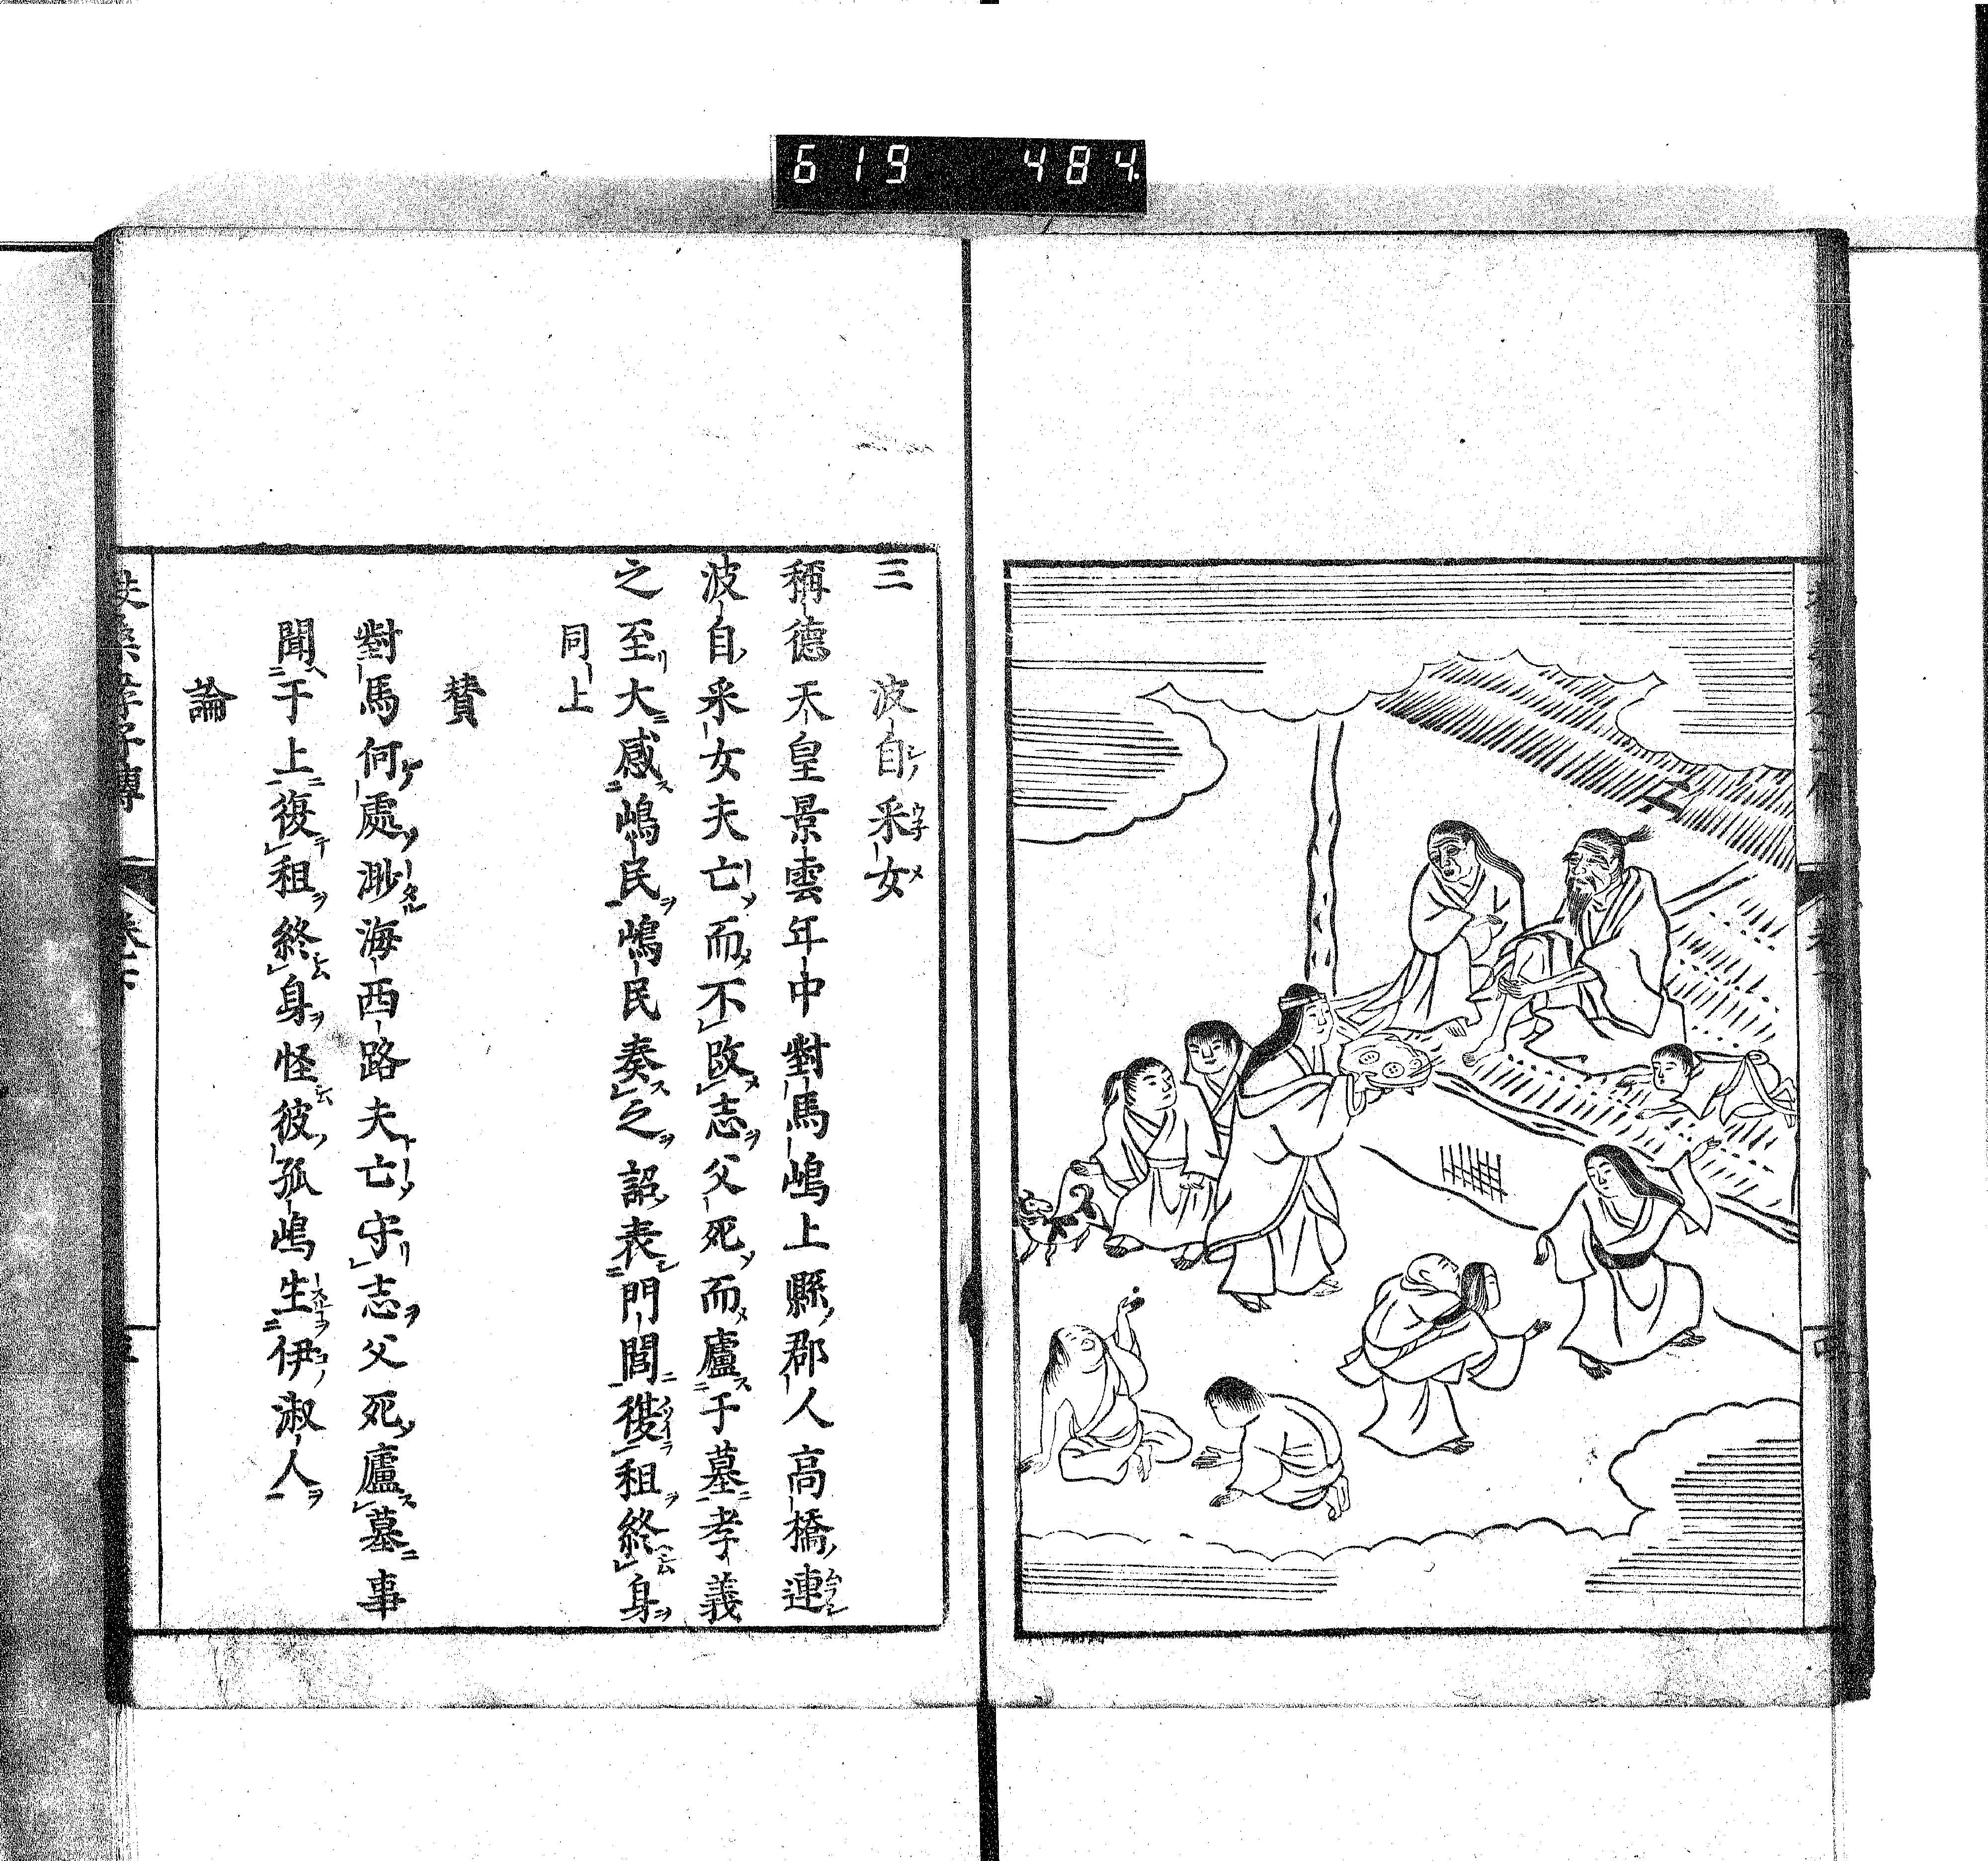 619 484
三 波自采女
稱德天皇景雲年中對馬嶋上縣郡人高橋連
波自采女夫亡而不改志父死而廬于墓孝義
之至大感嶋民嶋民奏之詔表門閭復租終身
同上
贊
對馬何處渺海西路夫亡守志父死廬墓事
聞于上復租終身怪彼孤嶋生伊淑人
論
扶桑孝子傳